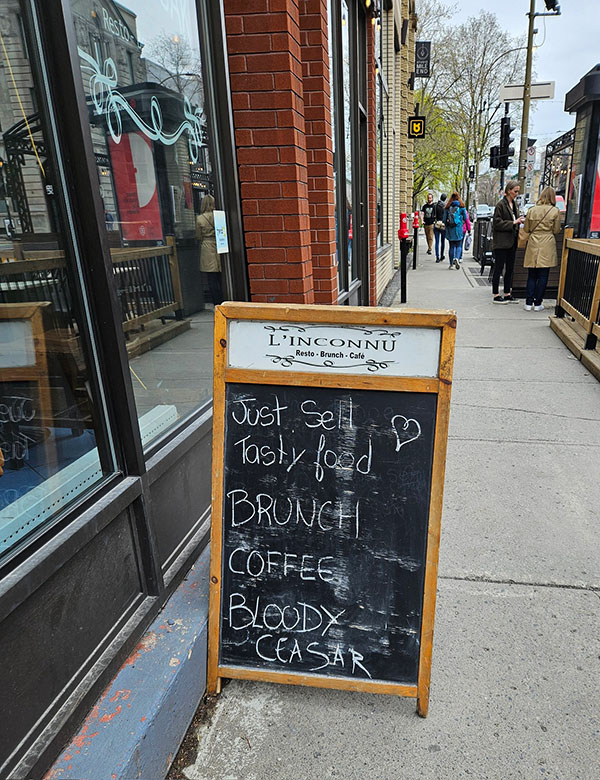 Resto
L'INCONNU
Resto - Brunch - Café
Just Sell
Tasty food
BRUNCH
COFFEE
BLOODY
CEASAR